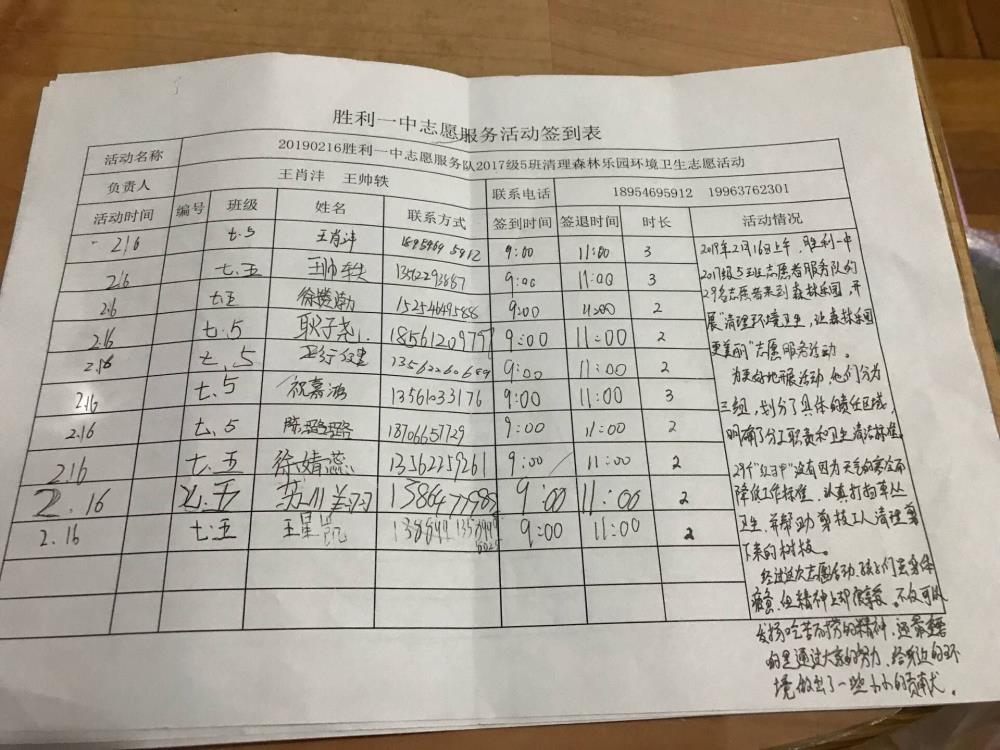 胜利一中志愿服务活动签到表
活动名称 20190216胜利一中志愿服务队2017级5班清理森林乐园环境卫生志愿活动
负责人 王肖沣 王帅轶 联系电话 18954695912 19963762301
活动时间 编号 班级 姓名 联系方式 签到时间 签退时间 时长 活动情况
2.16 七.5 王肖沣 5912 9:00 11:00 3
2.16 七.五 王帅轶 13562293887 9:00 11:00 3
2.6 七.五 徐赟勋 15254649588 9:00 11:00 2
2.16 七.5 耿子尧 18561209797 9:00 11:00 2
2.16 七.5 13562260689 9:00 11:00 2
2.16 七.5 祝嘉鸿 13561033176 9:00 11:00 3
2.16 七.5 陈璐璐 13706657729 9:00 11:00 2
2.16 七.五 徐婧蕊 13562259261 9:00 11:00 2
2.16 七.五 苏川 9:00 11:00 2
2.16 七.五 王星凯 9:00 11:00 2
2019年2月16日上午，胜利一中
2017级5班志愿者服务队的
29名志愿者来到森林乐园，开
展"清理环境卫生，让森林乐园
更美丽"志愿服务活动。
为更好地开展活动，他们分为
三组，划分了具体的责任区域，
明确了分工职责和卫生清洁标准。
29个"红马甲"没有因为天气的寒冷而
降低工作标准，认真打扫草丛
卫生，并帮助剪枝工人清理剪
下来的树枝。
经过这次志愿活动，孩子们虽身体
疲惫，但精神上却很享受。不仅可以
发扬吃苦耐劳的精神，还最重要
的是通过大家的努力，给身边的环
境做出了一些小小的贡献。